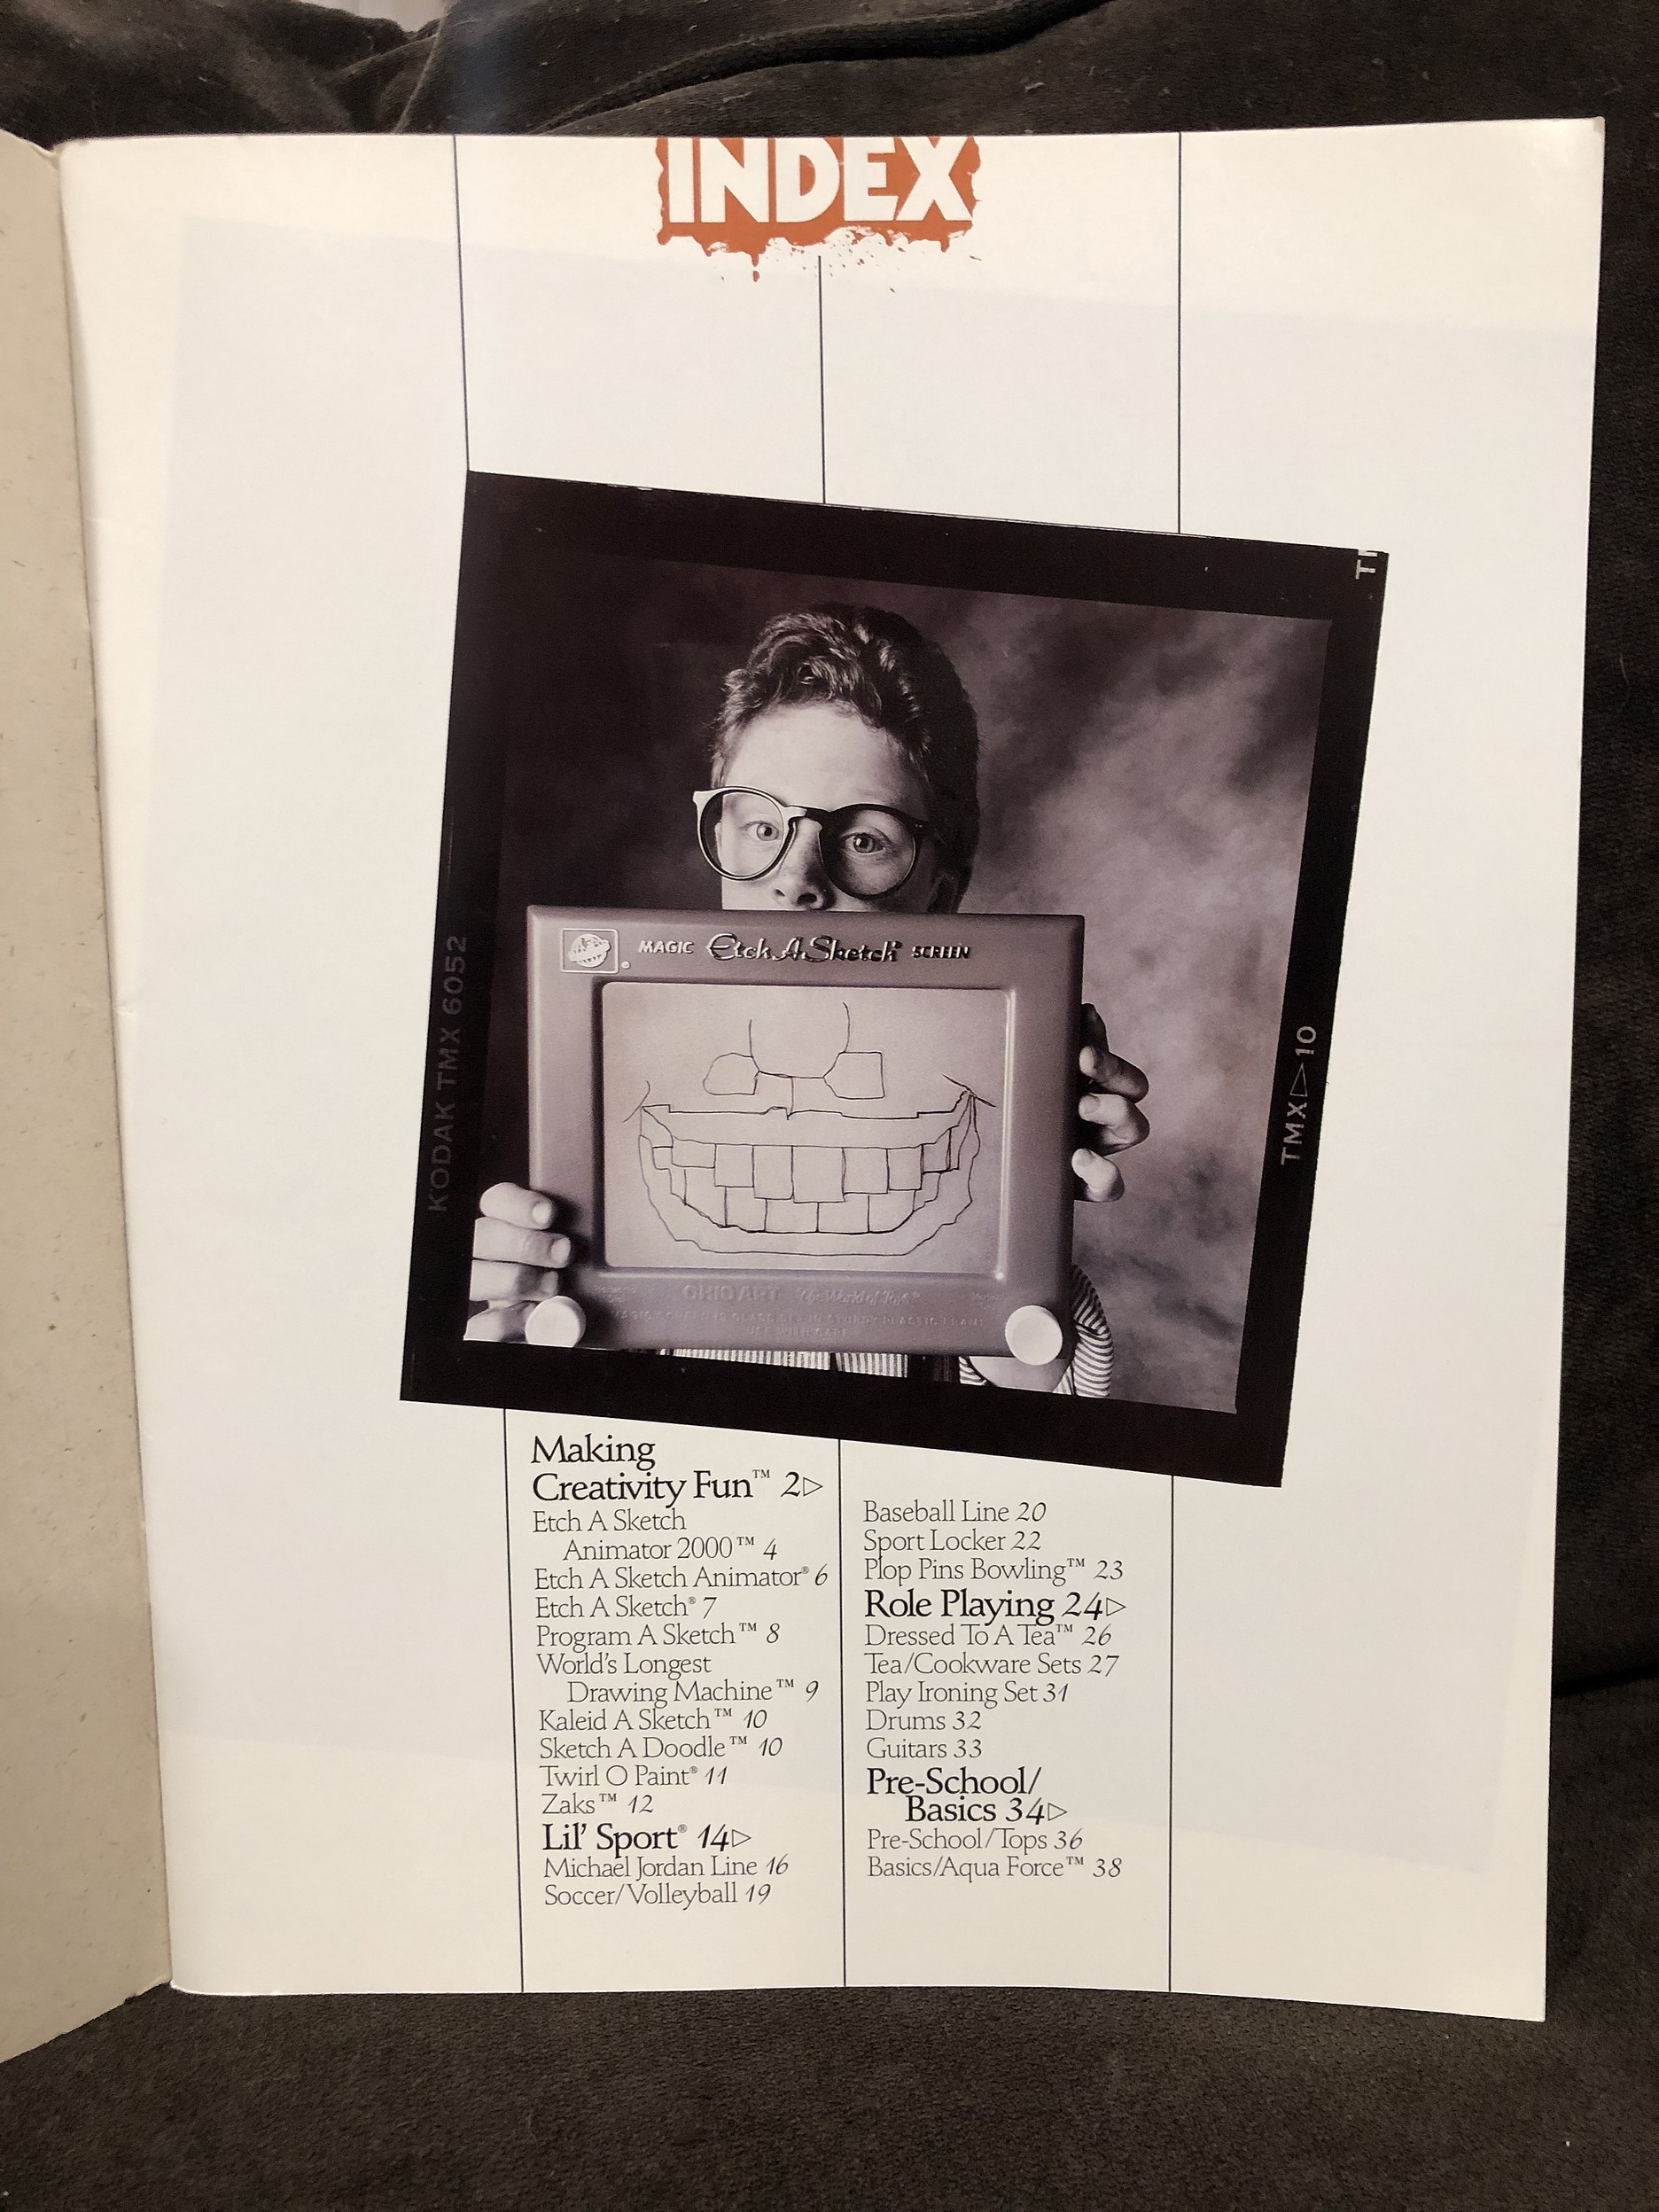 INDEX
KODAK TMX 6052
TMX▷10
MAGIC Etch A Sketch SCREEN
OHIO ART "the World of Toys"
USE WITH CARE
Making
Creativity Fun™ 2▷
Etch A Sketch
Animator 2000™ 4
Etch A Sketch Animator® 6
Etch A Sketch® 7
Program A Sketch™ 8
World's Longest
Drawing Machine™ 9
Kaleid A Sketch™ 10
Sketch A Doodle™ 10
Twirl O Paint® 11
Zaks™ 12
Lil' Sport® 14▷
Michael Jordan Line 16
Soccer/Volleyball 19
Baseball Line 20
Sport Locker 22
Plop Pins Bowling™ 23
Role Playing 24▷
Dressed To A Tea™ 26
Tea/Cookware Sets 27
Play Ironing Set 31
Drums 32
Guitars 33
Pre-School/
Basics 34▷
Pre-School/Tops 36
Basics/Aqua Force™ 38